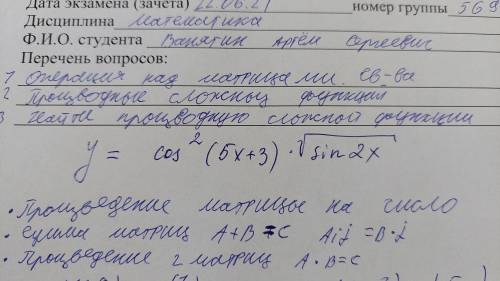 Дата экзамена (зачета) 22.06.21 номер группы 569
Дисциплина Математика
Ф.И.О. студента Ванятин Артём Сергеевич
Перечень вопросов:
1 Операция над матрицами. св-ва
2 Производные сложных функции
3 Найти производную сложной функции
y = cos² (5x+3) · √sin2x
• Произведение матрицы на число
• Сумма матриц A+B=C Aij =B·j
• Произведение 2 матриц A·B=C